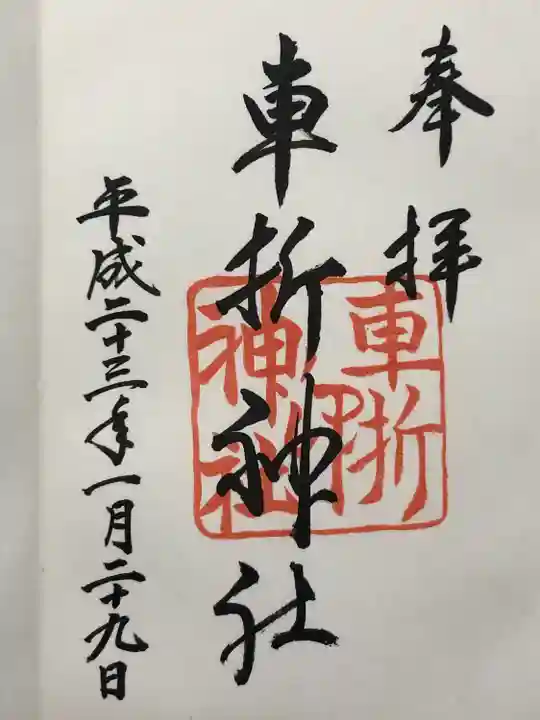 奉拝
車折神社
車折神社印
平成二十三年一月二十九日